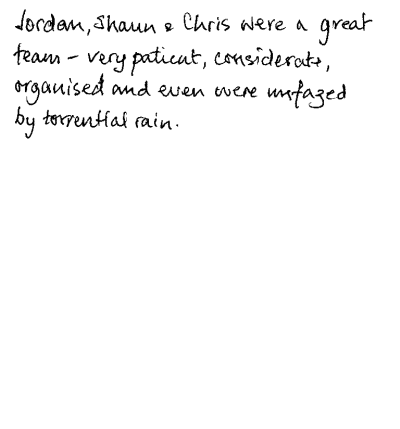 Jordan, Shaun & Chris were a great
team - very patient, considerate,
organised and even were unfazed
by torrential rain.